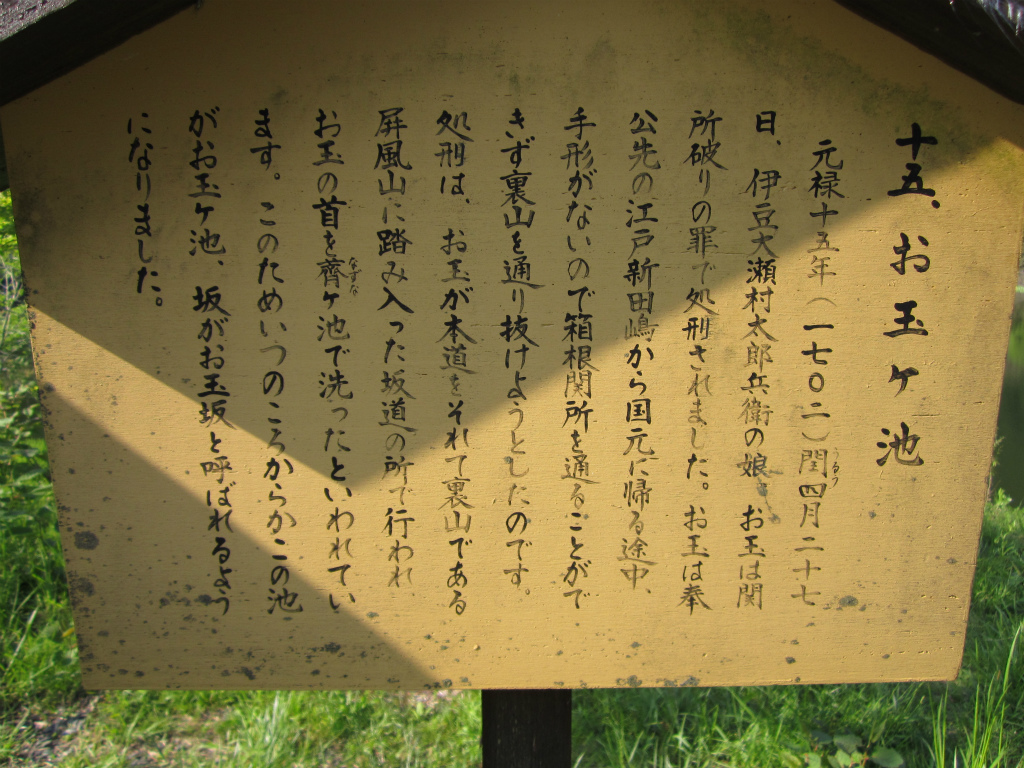 十五、お玉ケ池
元禄十五年（一七〇二）閏四月二十七
うるう
日、伊豆大瀬村太郎兵衛の娘、お玉は関
所破りの罪で処刑されました。お玉は奉
公先の江戸新田嶋から国元に帰る途中、
手形がないので箱根関所を通ることがで
きず裏山を通り抜けようとしたのです。
処刑は、お玉が本道をそれて裏山である
屏風山に踏み入った坂道の所で行われ、
お玉の首を薺ケ池で洗ったといわれてい
なずな
ます。このためいつのころからかこの池
がお玉ケ池、坂がお玉坂と呼ばれるよう
になりました。